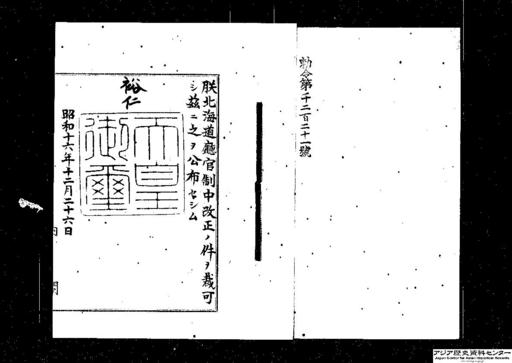 勅令第千二百二十一號
朕北海道廳官制中改正ノ件ヲ裁可
シ茲ニ之ヲ公布セシム
裕仁
天皇御璽
昭和十六年十二月二十六日
内閣
アジア歴史資料センター
Japan Center for Asian Historical Records